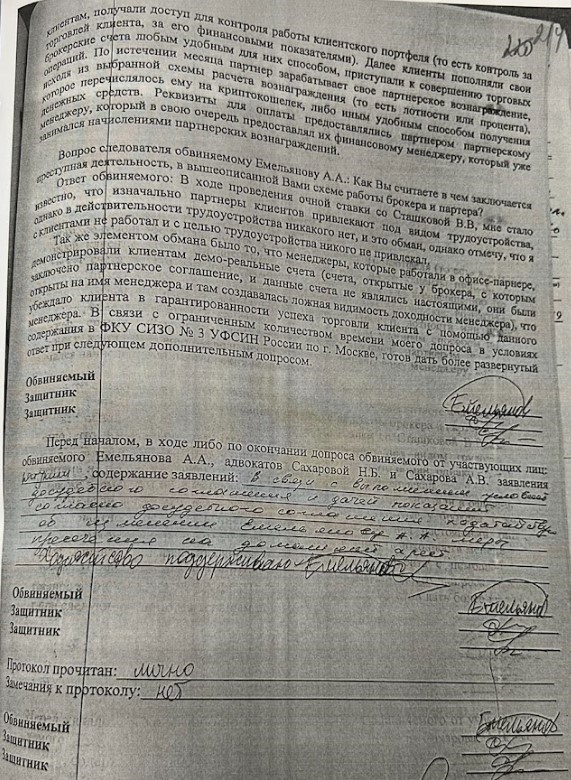 219
клиентам, получали доступ для контроля работы клиентского портфеля (то есть контроль за
торговлей клиента, за его финансовыми показателями). Далее клиенты пополняли свои
брокерские счета любым удобным для них способом, приступали к совершению торговых
операций. По истечении месяца партнер зарабатывает свое партнерское вознаграждение,
исходя из выбранной схемы расчета вознаграждения (то есть лотности или процента),
которое перечислялось ему на криптокошелек, либо иным удобным способом получения
денежных средств. Реквизиты для оплаты предоставлялись партнером партнерскому
менеджеру, который в свою очередь предоставлял их финансовому менеджеру, который уже
занимался начислениями партнерских вознаграждений.
Вопрос следователя обвиняемому Емельянову А.А.: Как Вы считаете в чем заключается
преступная деятельность, в вышеописанной Вами схеме работы брокера и партера?
Ответ обвиняемого: В ходе проведения очной ставки со Сташковой В.В, мне стало
известно, что изначально партнеры клиентов привлекают под видом трудоустройства,
однако в действительности трудоустройства никакого нет, и это обман, однако отмечу, что я
с клиентами не работал и с целью трудоустройства никого не привлекал.
Так же элементом обмана было то, что менеджеры, которые работали в офисе-парнере,
демонстрировали клиентам демо-реальные счета (счета, открытые у брокера, с которым
заключено партнерское соглашение, и данные счета не являлись настоящими, они были
открыты на имя менеджера и там создавалась ложная видимость доходности менеджера), что
убеждало клиента в гарантированности успеха торговли клиента с помощью данного
менеджера. В связи с ограниченным количеством времени моего допроса в условиях
содержания в ФКУ СИЗО № 3 УФСИН России по г. Москве, готов дать более развернутый
ответ при следующем дополнительным допросом.
Обвиняемый Емельянов
Защитник
Защитник
Перед началом, в ходе либо по окончании допроса обвиняемого от участвующих лиц:
обвиняемого Емельянова А.А., адвокатов Сахаровой Н.Б. и Сахарова А.В. заявления
содержание заявлений: В связи с выполнением условий
досудебного соглашения и дачей показаний
согласно досудебного соглашения ходатайствую
об изменении Емельянову А.А. меры
пресечения на домашний арест
Ходатайство поддерживаю Емельянов
Обвиняемый Емельянов
Защитник
Защитник
Протокол прочитан: лично
Замечания к протоколу: нет
Обвиняемый Емельянов
Защитник
Защитник